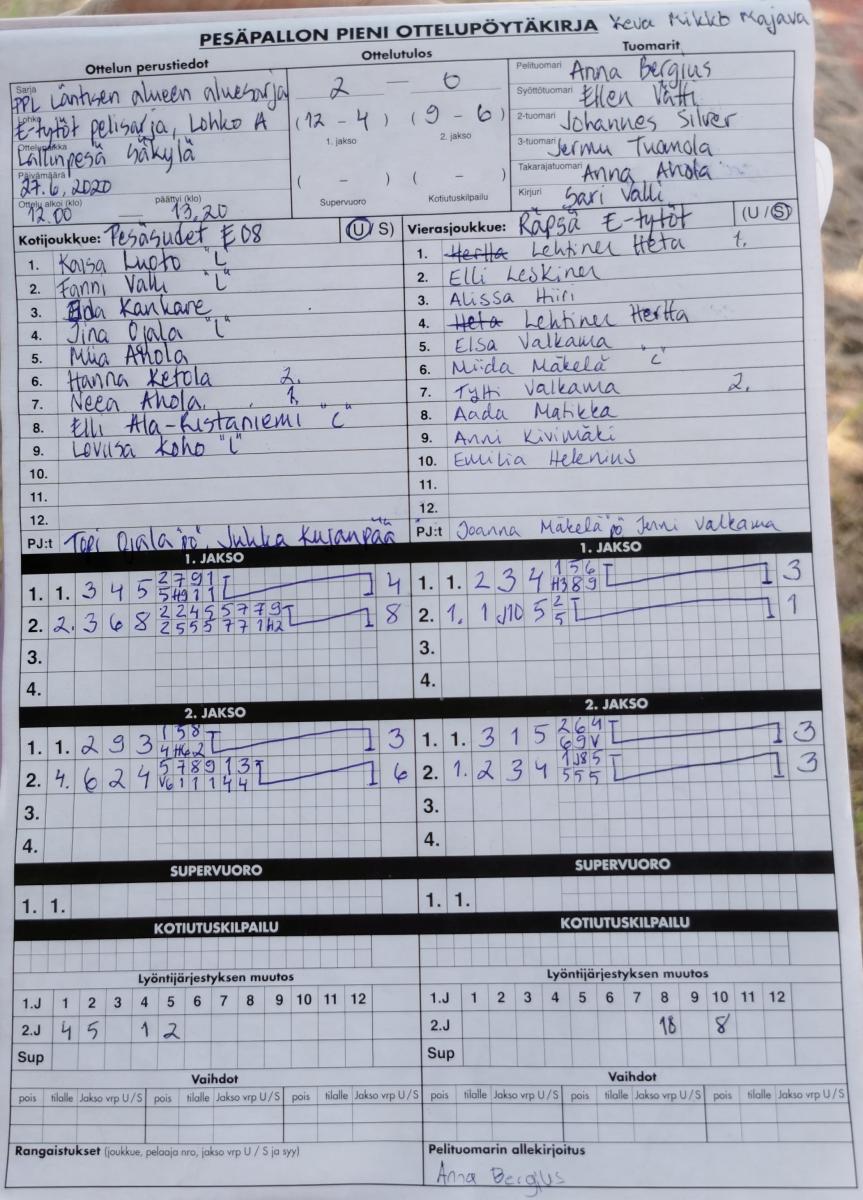 PESÄPALLON PIENI OTTELUPÖYTÄKIRJA Keva Mikko Majava
Ottelun perustiedot
Ottelutulos
Tuomarit
Sarja PPL Läntisen alueen aluesarja
Lohko E-tytöt pelisarja, Lohko A
Ottelupaikka Lallinpesä Säkylä
Päivämäärä 27.6.2020
Ottelu alkoi (klo) päättyi (klo)
12.00 — 13.20
2 — 0
(12 - 4) (9 - 6)
1. jakso 2. jakso
( - ) ( - )
Supervuoro Kotiutuskilpailu
Pelituomari Anna Bergius
Syöttötuomari Ellen Vätti
2-tuomari Johannes Silver
3-tuomari Jermu Tuomola
Takarajatuomari Anna Ahola
Kirjuri Sari Valli
Kotijoukkue: Pesäsudet E08 (U / S)
1. Kaisa Luoto "L"
2. Fanni Valli "L"
3. Eda Kankare
4. Iina Ojala "L"
5. Miia Ahola
6. Hanna Ketola 2.
7. Neea Ahola 1.
8. Elli Ala-Ristaniemi "C"
9. Loviisa Koho "L"
10.
11.
12.
PJ:t Topi Ojala "pö", Jukka Kujanpää
Vierasjoukkue: Räpsä E-tytöt (U / S)
1. Hertta Lehtinen Heta 1.
2. Elli Leskinen
3. Alissa Hiiri
4. Heta Lehtinen Hertta
5. Elsa Valkama
6. Miida Mäkelä "C"
7. Tytti Valkama 2.
8. Aada Matikka
9. Anni Kivimäki
10. Emilia Helenius
11.
12.
PJ:t Joanna Mäkelä "pö" Jenni Valkama
1. JAKSO
1. 1. 3 4 5 2 7 9 1 4
5 H9 1 1
2. 2. 3 6 8 2 2 4 5 5 7 7 9 8
2 5 5 5 7 7 1 H2
3.
4.
1. JAKSO
1. 1. 2 3 4 1 5 6 3
H3 8 9
2. 1. 1 J10 5 2 1
5
3.
4.
2. JAKSO
1. 1. 2 9 3 1 5 8 3
4 H6 2
2. 4. 6 2 4 5 7 8 9 1 3 6
V6 1 1 1 4 4
3.
4.
2. JAKSO
1. 1. 3 1 5 2 6 4 3
6 9 V
2. 1. 2 3 4 1 J8 5 3
5 5 5
3.
4.
SUPERVUORO
1. 1.
SUPERVUORO
1. 1.
KOTIUTUSKILPAILU
KOTIUTUSKILPAILU
Lyöntijärjestyksen muutos
1.J 1 2 3 4 5 6 7 8 9 10 11 12
2.J 4 5 1 2
Sup
Lyöntijärjestyksen muutos
1.J 1 2 3 4 5 6 7 8 9 10 11 12
2.J 8
Sup
Vaihdot
pois tilalle Jakso vrp U / S pois tilalle Jakso vrp U / S pois tilalle Jakso vrp U / S
Vaihdot
pois tilalle Jakso vrp U / S pois tilalle Jakso vrp U / S pois tilalle Jakso vrp U / S
Rangaistukset (joukkue, pelaaja nro, jakso vrp U / S ja syy)
Pelituomarin allekirjoitus
Anna Bergius